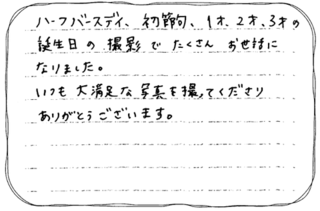 ハーフバースデイ、初節句、1才、2才、3才の
誕生日の撮影でたくさんお世話に
なりました。
いつも大満足な写真を撮ってくださり
ありがとうございます。